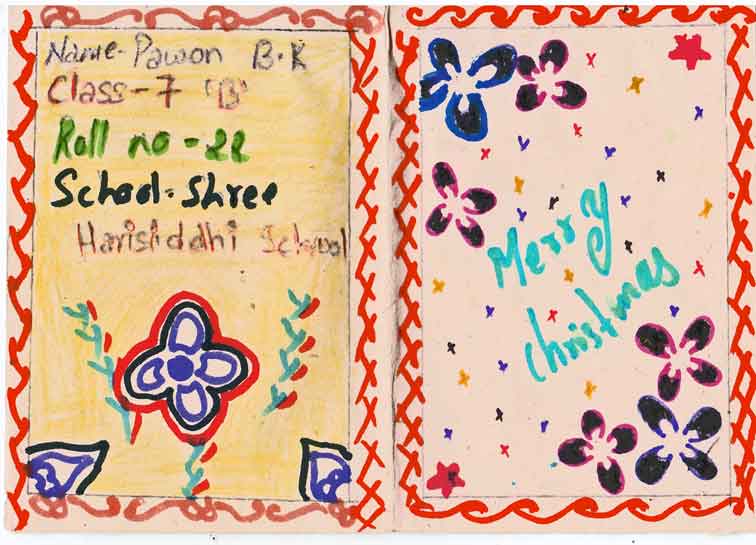 Name- Pawon B.K
Class-7 'B'
Roll no-22
School-Shree
Harisiddhi School
Merry
christmas